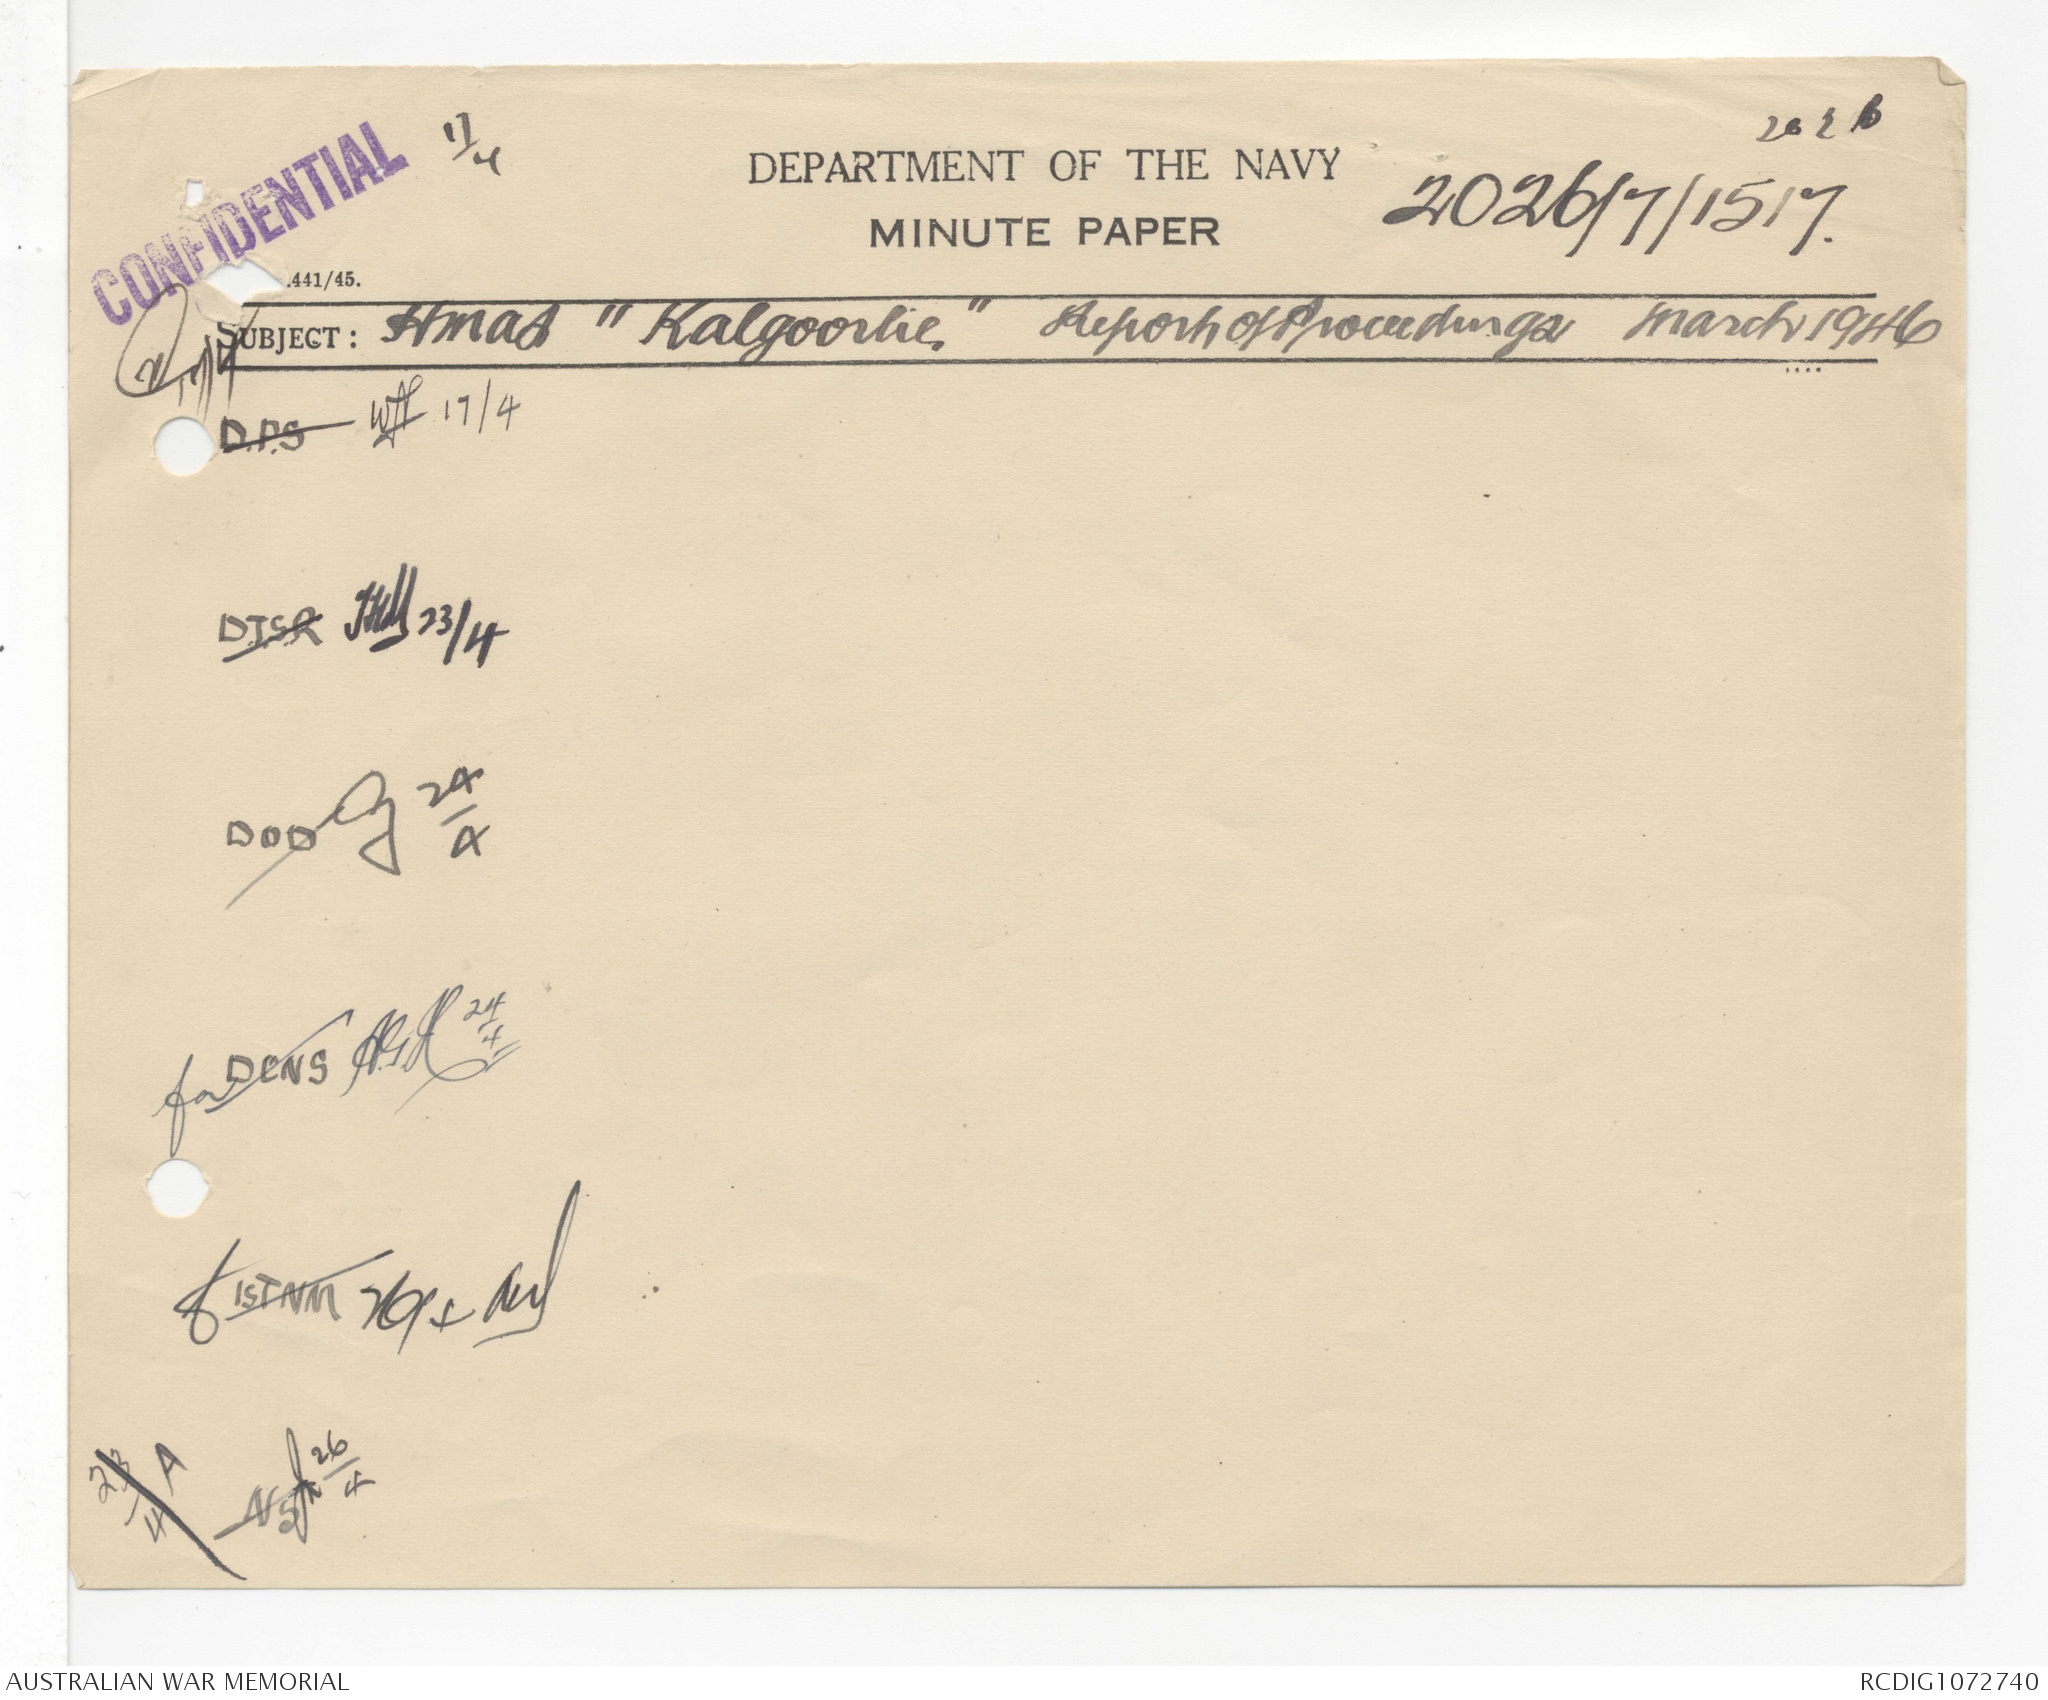 CONFIDENTIAL
17/4
DEPARTMENT OF THE NAVY
MINUTE PAPER
2026/7/1517.
441/45.
SUBJECT: HMAS "Kalgoorlie" Report of Proceedings March 1946
D.P.S 17/4
D.T.S.R 23/4
DOD 24/4
for DCNS 24/4
1STNM
26/4
23/4 A
AUSTRALIAN WAR MEMORIAL
RCDIG1072740